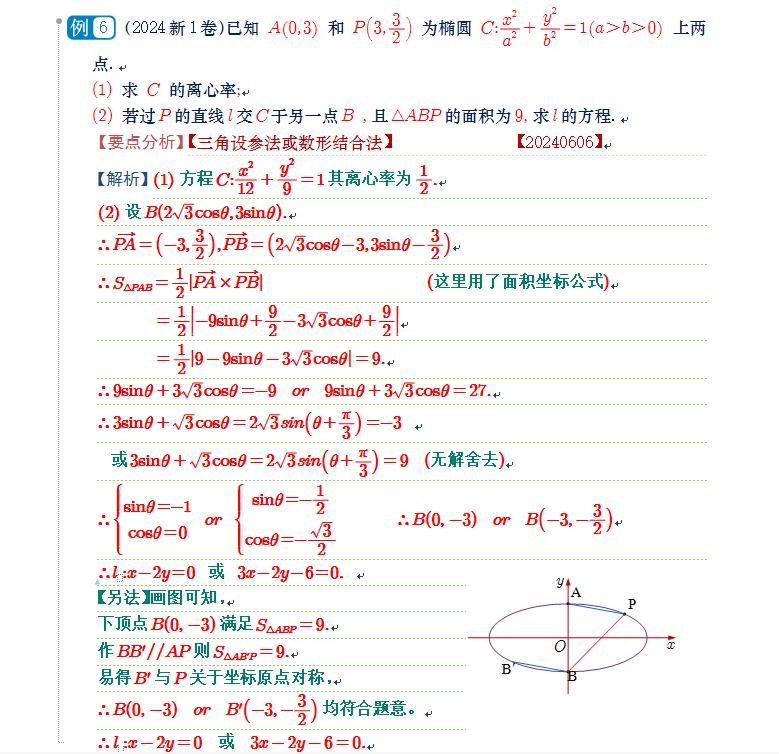 例 6 (2024新1卷)已知 A(0,3) 和 P(3,3/2) 为椭圆 C:x²/a²+y²/b²=1(a>b>0) 上两
点.
(1) 求 C 的离心率;
(2) 若过P的直线l交C于另一点B ,且△ABP的面积为9,求l的方程.
【要点分析】【三角设参法或数形结合法】 【20240606】
【解析】(1) 方程C:x²/12+y²/9=1其离心率为1/2.
(2) 设B(2√3cosθ,3sinθ).
∴PA→=(-3,3/2),PB→=(2√3cosθ-3,3sinθ-3/2)
∴S△PAB=1/2|PA→×PB→| (这里用了面积坐标公式)
=1/2|-9sinθ+9/2-3√3cosθ+9/2|
=1/2|9-9sinθ-3√3cosθ|=9.
∴9sinθ+3√3cosθ=-9 or 9sinθ+3√3cosθ=27.
∴3sinθ+√3cosθ=2√3sin(θ+π/3)=-3
或3sinθ+√3cosθ=2√3sin(θ+π/3)=9 (无解舍去)
∴{sinθ=-1 cosθ=0 or {sinθ=-1/2 cosθ=-√3/2 ∴B(0,-3) or B(-3,-3/2)
∴l:x-2y=0 或 3x-2y-6=0.
【另法】画图可知,
下顶点B(0,-3)满足S△ABP=9.
作BB′//AP则S△AB′P=9.
易得B′与P关于坐标原点对称,
∴B(0,-3) or B′(-3,-3/2)均符合题意。
∴l:x-2y=0 或 3x-2y-6=0.
y
A
P
O
x
B′
B